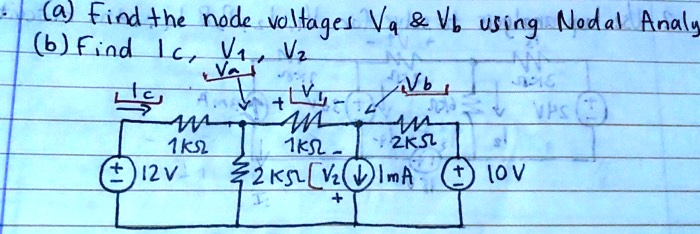 (a) Find the node voltages Va & Vb using Nodal Analy
(b) Find Ic, V1, V2
Va
Vb
Ic
+ V1 -
1KΩ
1KΩ
2KΩ
-
+
-
12V
2KΩ
V2
1mA
+
-
10V
+